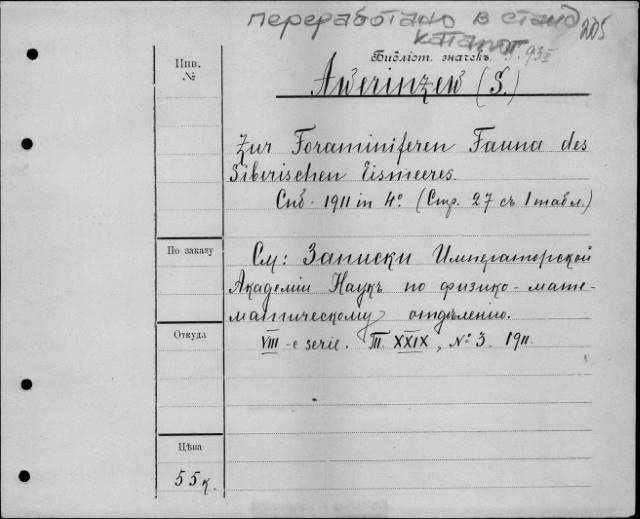 переработано в станд
каталог 205
Инв.
№
Библіот. значекъ 9. 93
Awerinzew (S.)
Zur Foraminiferen Fauna des
Siberischen Eismeeres.
Спб. 1911 in 4º. (Стр. 27 съ 1 табл.)
По заказу
См: Записки Императорской
Академіи Наукъ по физико-мате-
матическому отдѣленію.
Откуда
VIII-e serie. Т. XXIX, № 3. 1911.
Цѣна
55к.